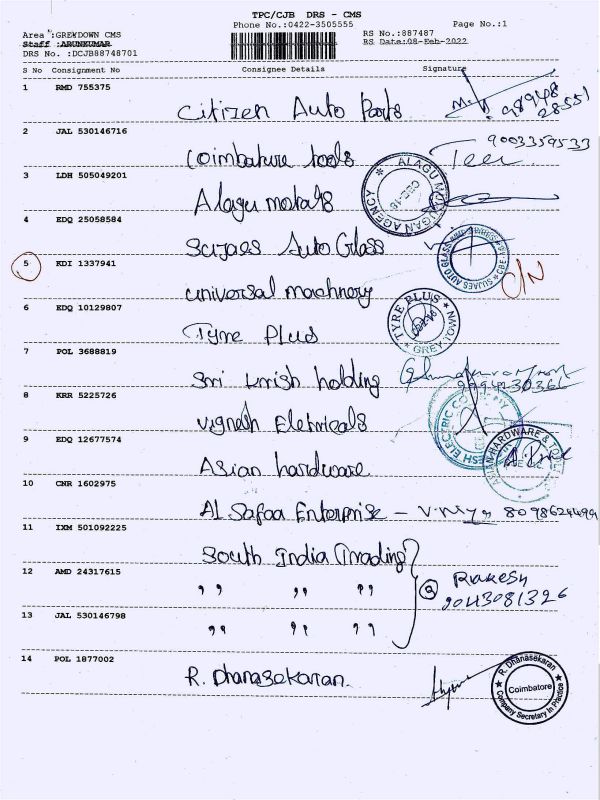 TPC/CJB DRS - CMS
Phone No.:0422-3505555
Page No.:1
Area :GREYDOWN CMS
RS No.:887487
Staff :ARUNKUMAR
RS Date:08-Feb-2022
DRS No. :DCJB88748701
S No Consignment No Consignee Details Signature
1 RMD 755375
Citizen Auto Parts 98948
28551
2 JAL 530146716
Coimbature tools 9003359533
3 LDH 505049201
Alagu metals
ALAGU MURUGAN AGENCY
CBE-18
4 EDQ 25058584
Sujaes Auto Glass
SUJAES AUTO GLASS
5 KDI 1337941
C/N
universal machnery
6 EDQ 10129807
Tyre Plus
TYRE PLUS
GREY TOWN
7 POL 3688819
Sri krish holding
8 KRR 5225726
Vignesh Eletricals
9 EDQ 12677574
ASIAN HARDWARE &
Asian hardware
10 CNR 1602975
AL Safaa Enterprise - 8098624499
11 IXM 501092225
South India Trading
12 AMD 24317615
" " " 3 Rakesh
9043081326
13 JAL 530146798
" " "
14 POL 1877002
R. Dhanasekaran.
R. Dhanasekaran
Coimbatore
Company Secretary in Practice